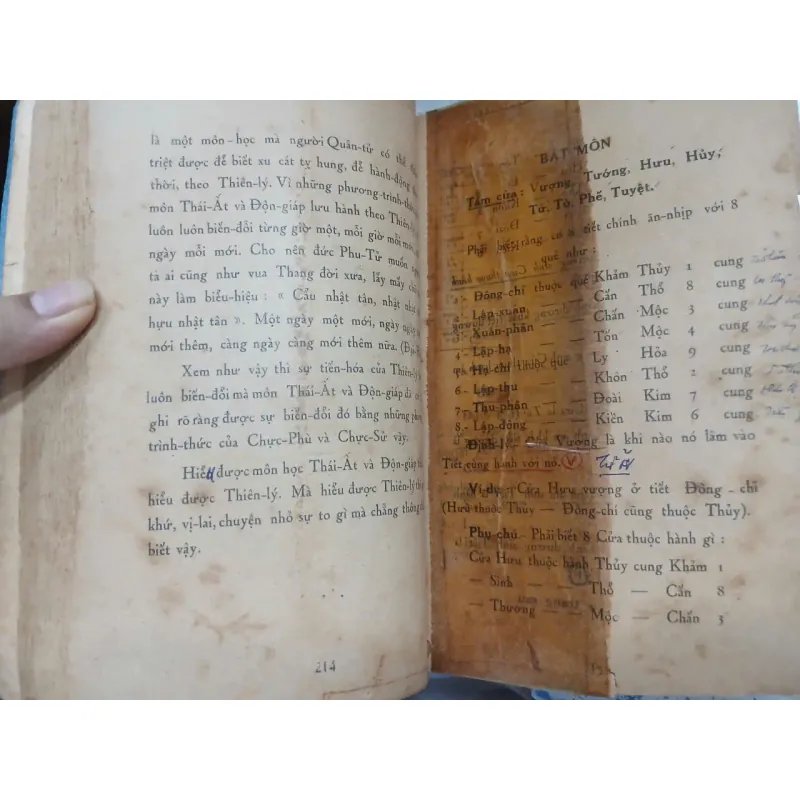 là một môn-học mà người Quân-tử có thể
triệt được để biết xu cát tỵ hung, để hành-động
thời, theo Thiên-lý. Vì những phương-trình-th
môn Thái-Ất và Độn-giáp lưu hành theo Thiên-l
luôn luôn biến-đổi từng giờ một, mỗi giờ mỗi mới
ngày mỗi mới. Cho nên đức Phu-Tử muốn
tả ai cũng như vua Thang đời xưa, lấy mấy ch
này làm biểu-hiệu : « Cẩu nhật tân, nhật nhậ
hựu nhật tân ». Một ngày một mới, ngày ngà
mới thêm, càng ngày càng mới thêm nữa. (Đạ
Xem như vậy thì sự tiến-hóa của Thiên-lý
luôn biến-đổi mà môn Thái-Ất và Độn-giáp đã c
ghi rõ ràng được sự biến-đổi đó bằng những
trình-thức của Chực-Phù và Chực-Sử vậy.
Hiểu được môn học Thái-Ất và Độn-giáp là
hiểu được Thiên-lý. Mà hiểu được Thiên-lý th
khứ, vị-lai, chuyện nhỏ sự to gì mà chẳng thông
biết vậy.
214
BÁT MÔN
Tám cửa : Vượng, Tướng, Hưu, Hủy,
Tử, Tù, Phế, Tuyệt.
Phải biết rằng có 8 tiết chính ăn-nhịp với 8
quẻ như :
1 - Đông-chí thuộc quẻ Khảm Thủy 1 cung
2 - Lập-xuân — — Cấn Thổ 8 cung
3 - Xuân-phân — — Chấn Mộc 3 cung
4 - Lập-hạ — — Tốn Mộc 4 cung
5 - Hạ-chí — — Ly Hỏa 9 cung
6 - Lập-thu — — Khôn Thổ 2 cung
7 - Thu-phân — — Đoài Kim 7 cung
8 - Lập-đông — — Kiền Kim 6 cung
Định-lý : Vượng là khi nào nó lâm vào
Tiết cùng hành với nó.
Ví dụ : Cửa Hưu vượng ở tiết Đông-chí
(Hưu thuộc Thủy — Đông-chí cũng thuộc Thủy).
Phụ chú - Phải biết 8 Cửa thuộc hành gì :
Cửa Hưu thuộc hành Thủy cung Khảm 1
— Sinh — — Thổ — Cấn 8
— Thương — — Mộc — Chấn 3